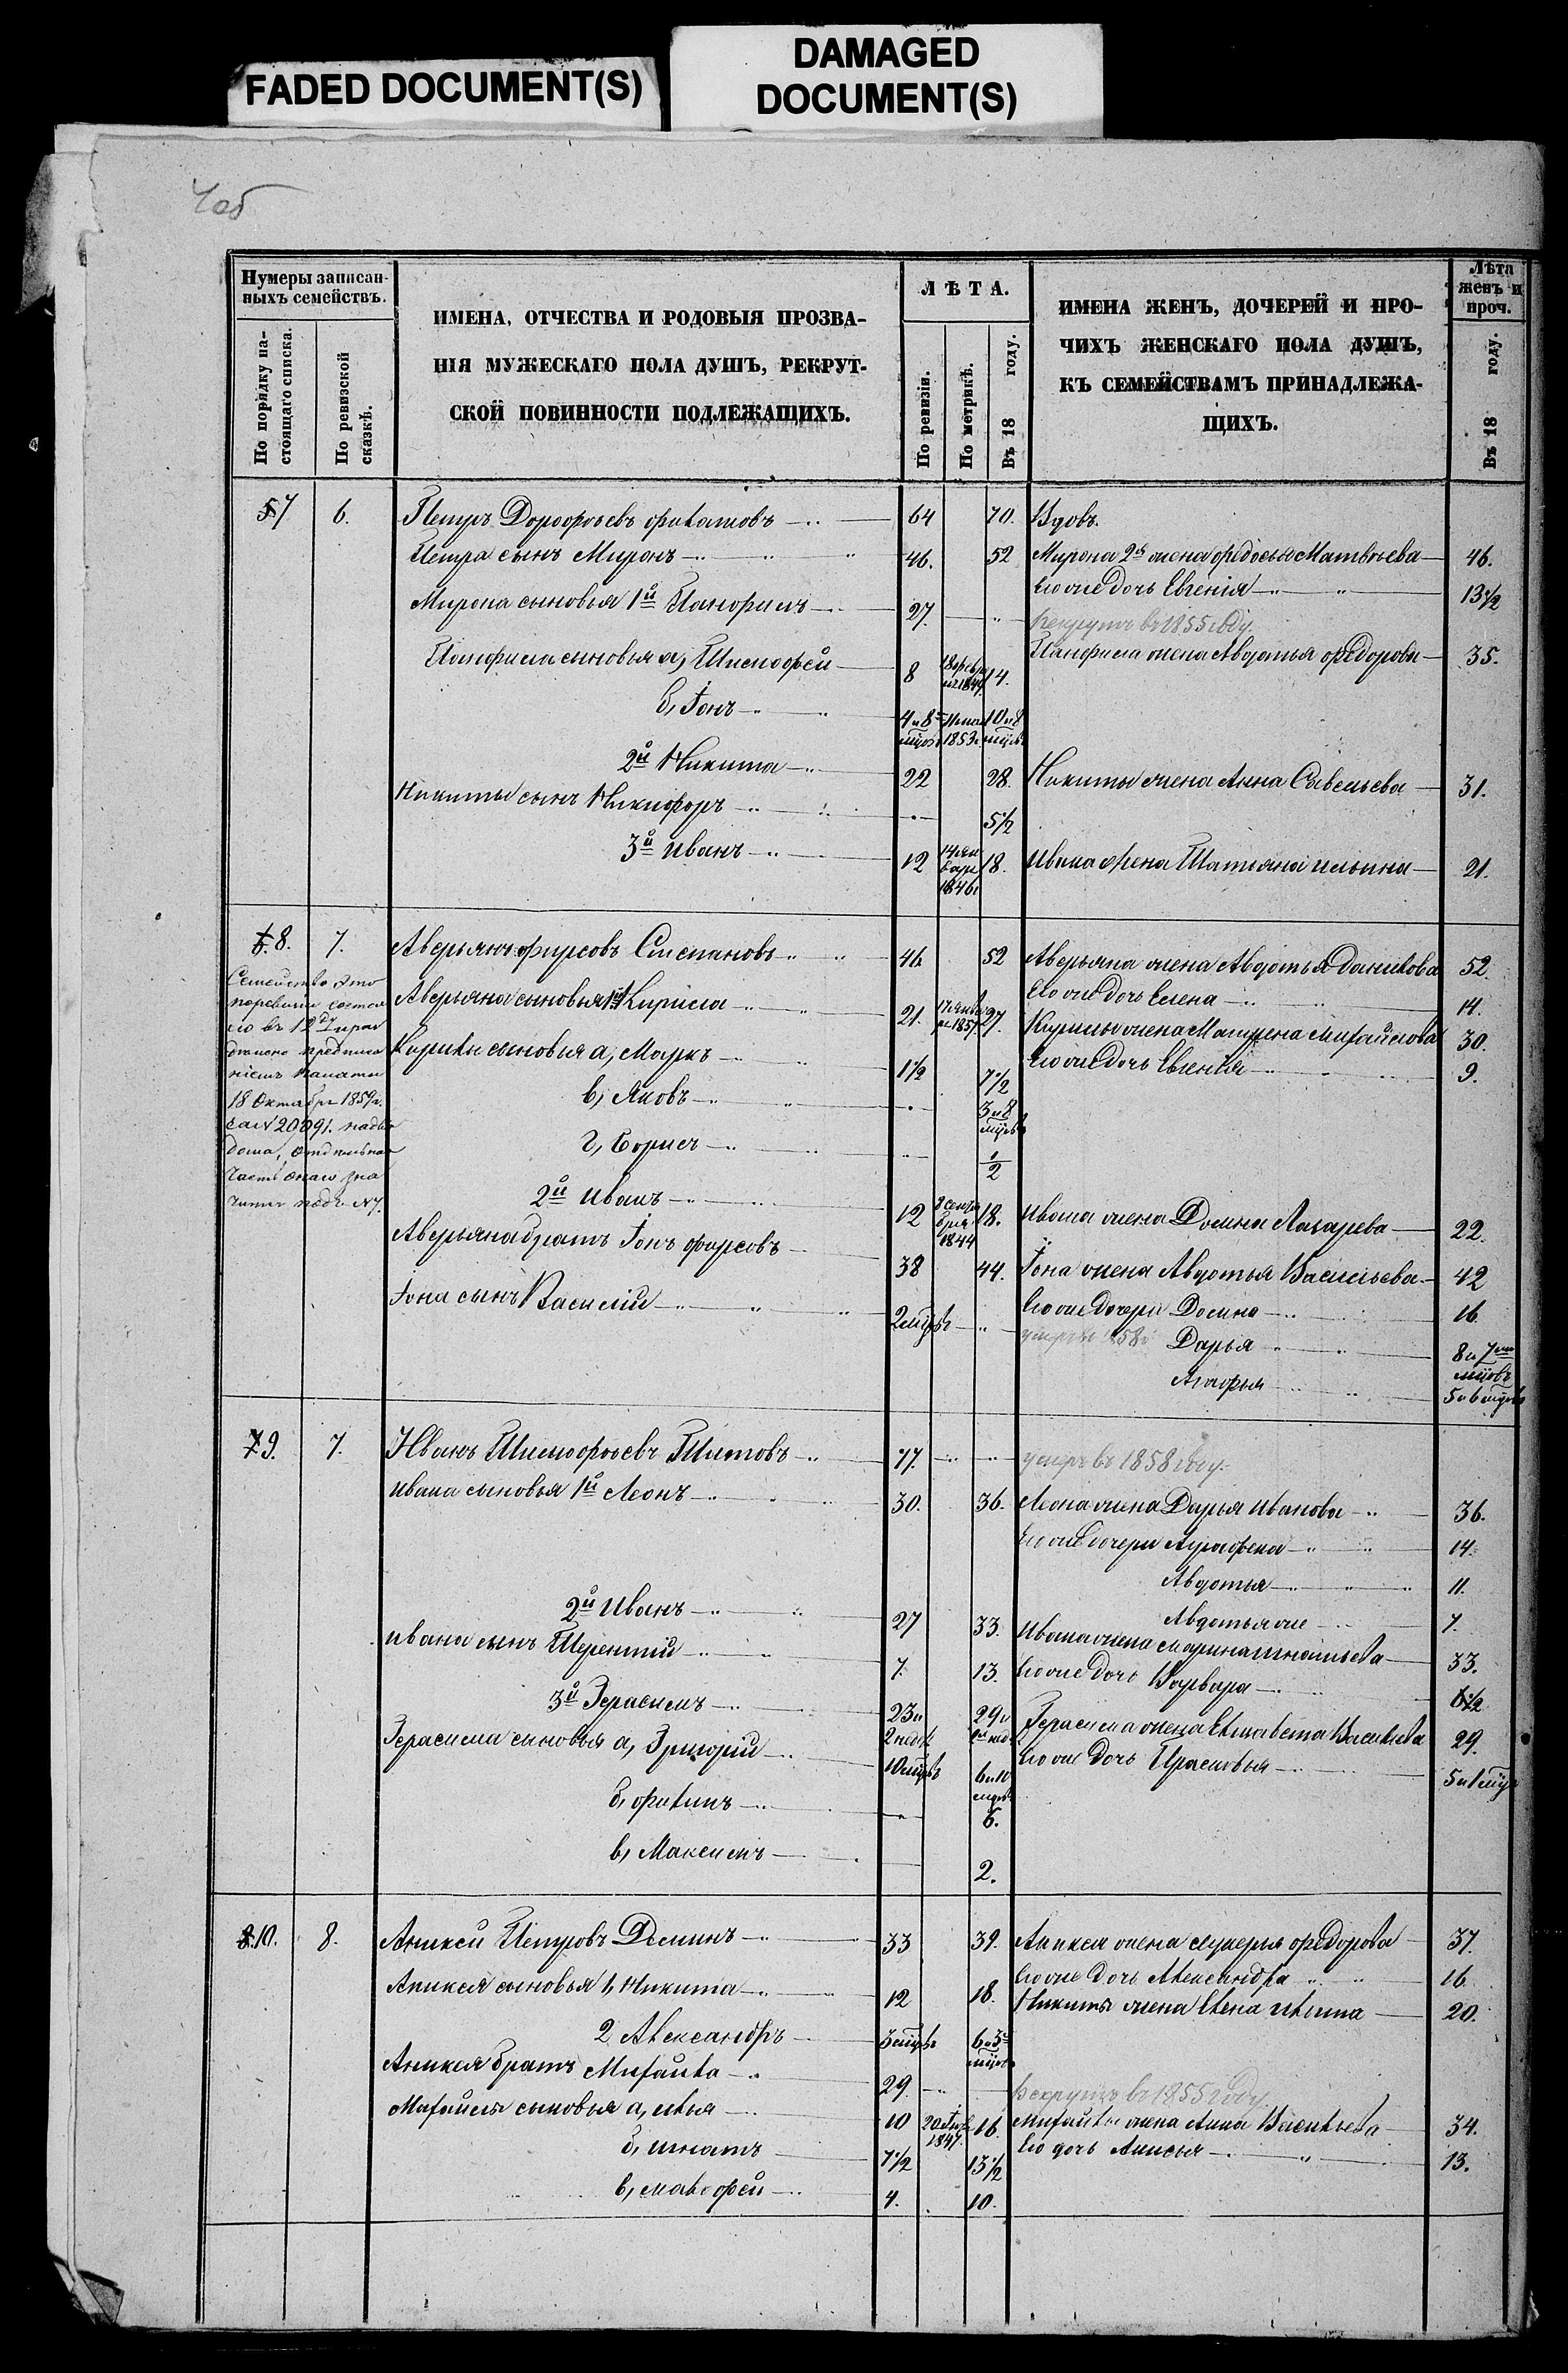 FADED DOCUMENT(S)
DAMAGED
DOCUMENT(S)
Нумеры записан-
ныхъ семействъ.
По порядку на-
стоящаго списка.
По ревизской
сказкѣ.
ИМЕНА, ОТЧЕСТВА И РОДОВЫЯ ПРОЗВА-
НІЯ МУЖЕСКАГО ПОЛА ДУШЪ, РЕКРУТ-
СКОЙ ПОВИННОСТИ ПОДЛЕЖАЩИХЪ.
ЛѢТА.
По ревизіи.
По метрикѣ.
Въ 18 году.
ИМЕНА ЖЕНЪ, ДОЧЕРЕЙ И ПРО-
ЧИХЪ ЖЕНСКАГО ПОЛА ДУШЪ,
КЪ СЕМЕЙСТВАМЪ ПРИНАДЛЕЖА-
ЩИХЪ.
Лѣта
женъ и
проч.
Въ 18 году.
7 6. Петръ Дорофѣевъ Филатовъ 64 70. Вдовъ.
Петра сынъ Миронъ 46. 52 Мирона 2я жена Федосья Матвѣева 46.
Его же дочь Евгенія 13 1/2
Мирона сыновья 1й Панфилъ 27. рекрутъ въ 1855 году.
Панфила сыновья а, Тимофей 8 14. Панфила жена Авдотья Федорова 35.
б, Іонъ 4 и 8 мцовъ 1853 10 и 8 мцовъ
2й Никита 22 28. Никиты жена Анна Савельева 31.
Никиты сынъ Никифоръ 5 1/2
3й Иванъ 12 14 января 1846 18. Ивана жена Татьяна Ильина 21.
8. 7. Аверьянъ Фирсовъ Степановъ 46. 52 Аверьяна жена Авдотья Данилова 52.
Семейство это
Его же дочь Елена 14.
Аверьяна сыновья 1й Кирила 21. 27. Кирилы жена Матрена Михайлова 30.
Кирилы сыновья а, Маркъ 1 1/2 7 1/2 Его же дочь Евгенія 9.
18 Октября 1859г.
в, Яковъ 3 и 8 мцовъ
г, Борисъ 1/2
2й Иванъ 12 8 сентября 1844 18. Ивана жена Домна Лазарева 22.
Аверьяна братъ Іонъ Фирсовъ 38 44. Іона жена Авдотья Васильева 42
Іона сынъ Василій 2 мцовъ умеръ 1858 Его же дочери Домна 16.
Дарья 8 и 7 мцовъ
Агафья 5 и 6 мцовъ
9. 7. Иванъ Тимофѣевъ Титовъ 77. умеръ въ 1858 году.
Ивана сыновья 1й Леонъ 30. 36. Леона жена Дарья Иванова 36.
Его же дочери Аграфена 14.
Авдотья 11.
Авдотья же 7.
2й Иванъ 27 33. Ивана жена Марина Игнатьева 33.
Ивана сынъ Терентій 7. 13. Его же дочь Варвара 6 1/2
3й Герасимъ 23 и 2 нед. 29 и 2 нед. Герасима жена Елизавета Васильева 29.
Герасима сыновья а, Григорій 10 мцовъ 6 и 10 мцовъ Его же дочь Прасковья 5 и 1 мцъ
б, Филипъ 6.
в, Максимъ 2.
10. 8. Аникей Петровъ Деминъ 33 39. Аникея жена Лукерья Федорова 37.
Его же дочь Александра 16
Аникея сыновья 1, Никита 12 18. Никиты жена Елена Ильина 20.
2 Александръ 3 мцовъ 6 и 3 мцовъ
Аникея братъ Михайла 29. рекрутъ въ 1855 году
Михайлы сыновья а, Илья 10 20 1847. 16. Михайлы жена Анна Васильева 34.
б, Игнатъ 7 1/2 13 1/2 Его дочь Анисья 13.
в, Малофей 4. 10.